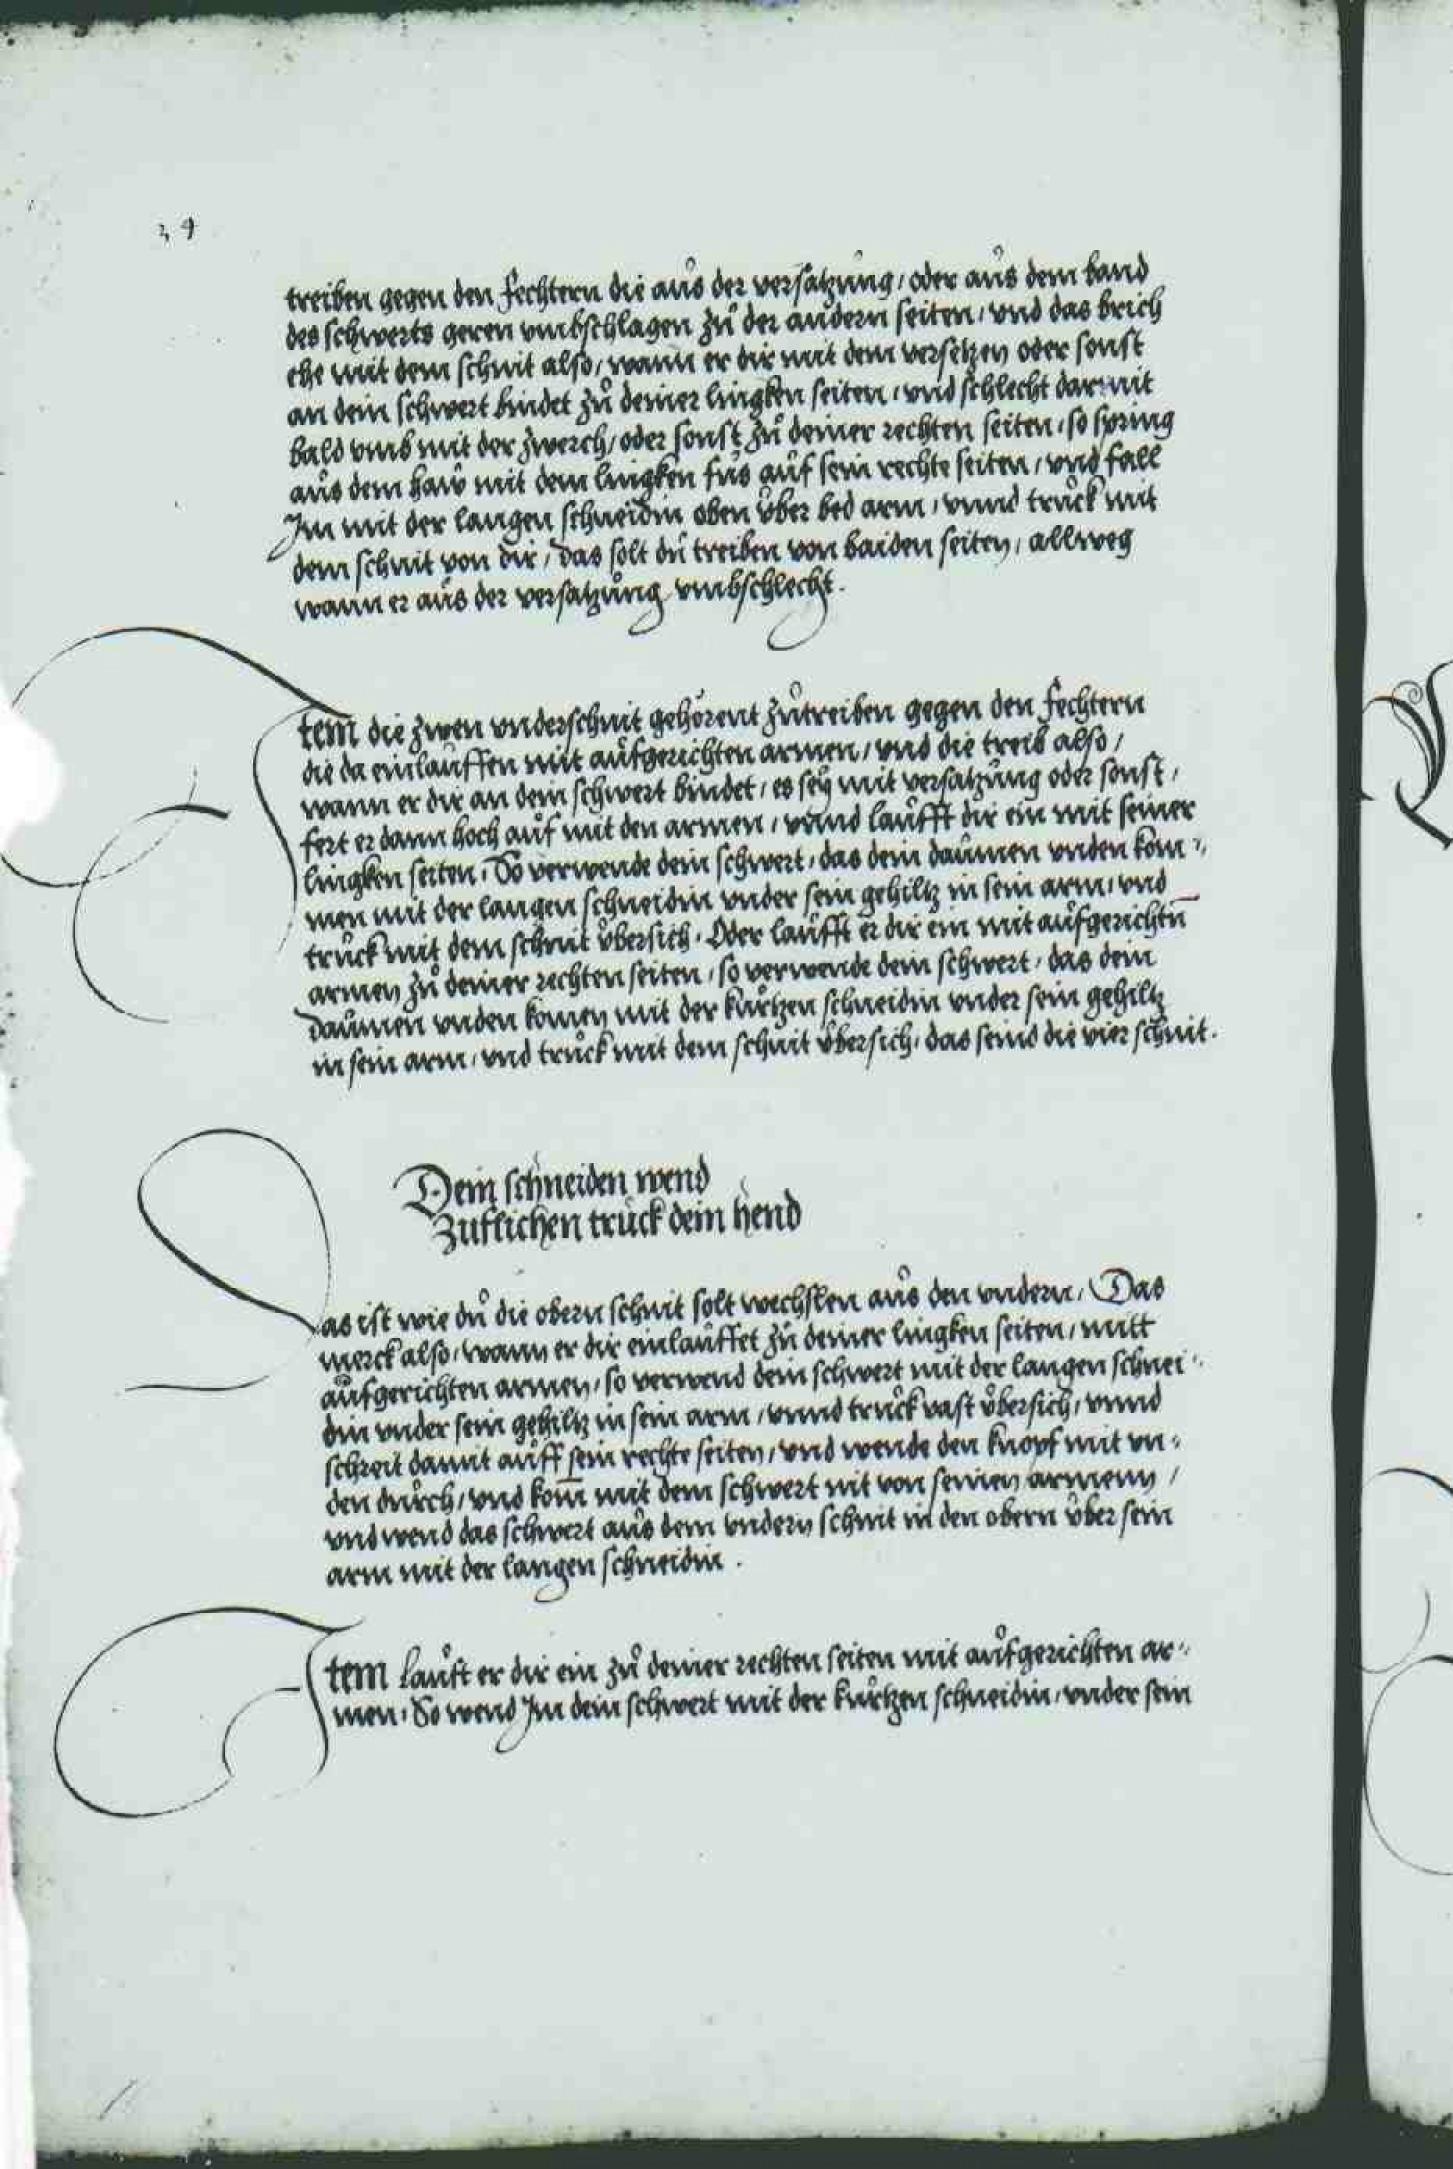 34
treiben gegen den fechtern die aůs der versatzůng / oder aůs dem band
des schwerts geren vmbschlagen zů der anndern seiten / vnd das brich
ehe mit dem schnit also / wann er dir mit dem versetzen oder sonst
an dein schwert bindet zů deiner lingken seiten / vnd schlecht darmit
bald vmb mit der zwerch / oder sonst zů deiner rechten seiten / so spring
aůs dem haw mit dem lingken fůs aůf sein rechte seiten / vnd fall
Im mit der langen schneidin oben über bed arm / vnnd trůck mit
dem schnit von dir / das solt dů treiben von baiden seiten / allweg
wann er aůs der versatzůng vmbschlecht .
Item die zwen vnderschnit gehörent zůtreiben gegen den fechtern
die da einlauffen mit aůfgerichten armen / vnd die treib also /
wann er dir an dein schwert bindet / es seÿ mit versatzůng oder sonst /
fert er dann hoch aůf mit den armen / vnnd laůfft dir ein mit seiner
lingken seiten . So verwende dein schwert / das dein daůmen vnden kom=
men mit der langen schneidin vnder sein gehiltz in sein arm / vnd
trůck mit dem schnit übersich . Oder laůfft er dir ein mit aůfgerichtn̄
armen zů deiner rechten seiten / so verwende dein schwert / das dein
daůmen vnden komen mit der kůrtzen schneidin vnder sein gehiltz
in sein arm / vnd trůck mit dem schnit übersich / das seind die vier schnit .
Dein schneiden wend
Zuflichen trůck dein hend
Das ist wie dů die obern schnit solt wechslen aůs den vndern / Das
merck also / wann er dir einlaůffet zů deiner lingken seiten / mitt
aůfgerichten armen / so verwend dein schwert mit der langen schnei=
din vnder sein gehiltz in sein arm / vnnd trůck vast übersich / vnnd
schreit damit aůff sein rechte seiten / vnd wende den knopf mit vn=
den důrch / vnd kom̄ mit dem schwert nit von seinen armenn /
vnd wend das schwert aůs dem vndern schnit in den obern über sein
arm mit der langen schneidin .
Item laůft er dir ein zů deiner rechten seiten mit aůfgerichten ar=
men . So wend Im dein schwert mit der kůrtzen schneidin / vnder sein